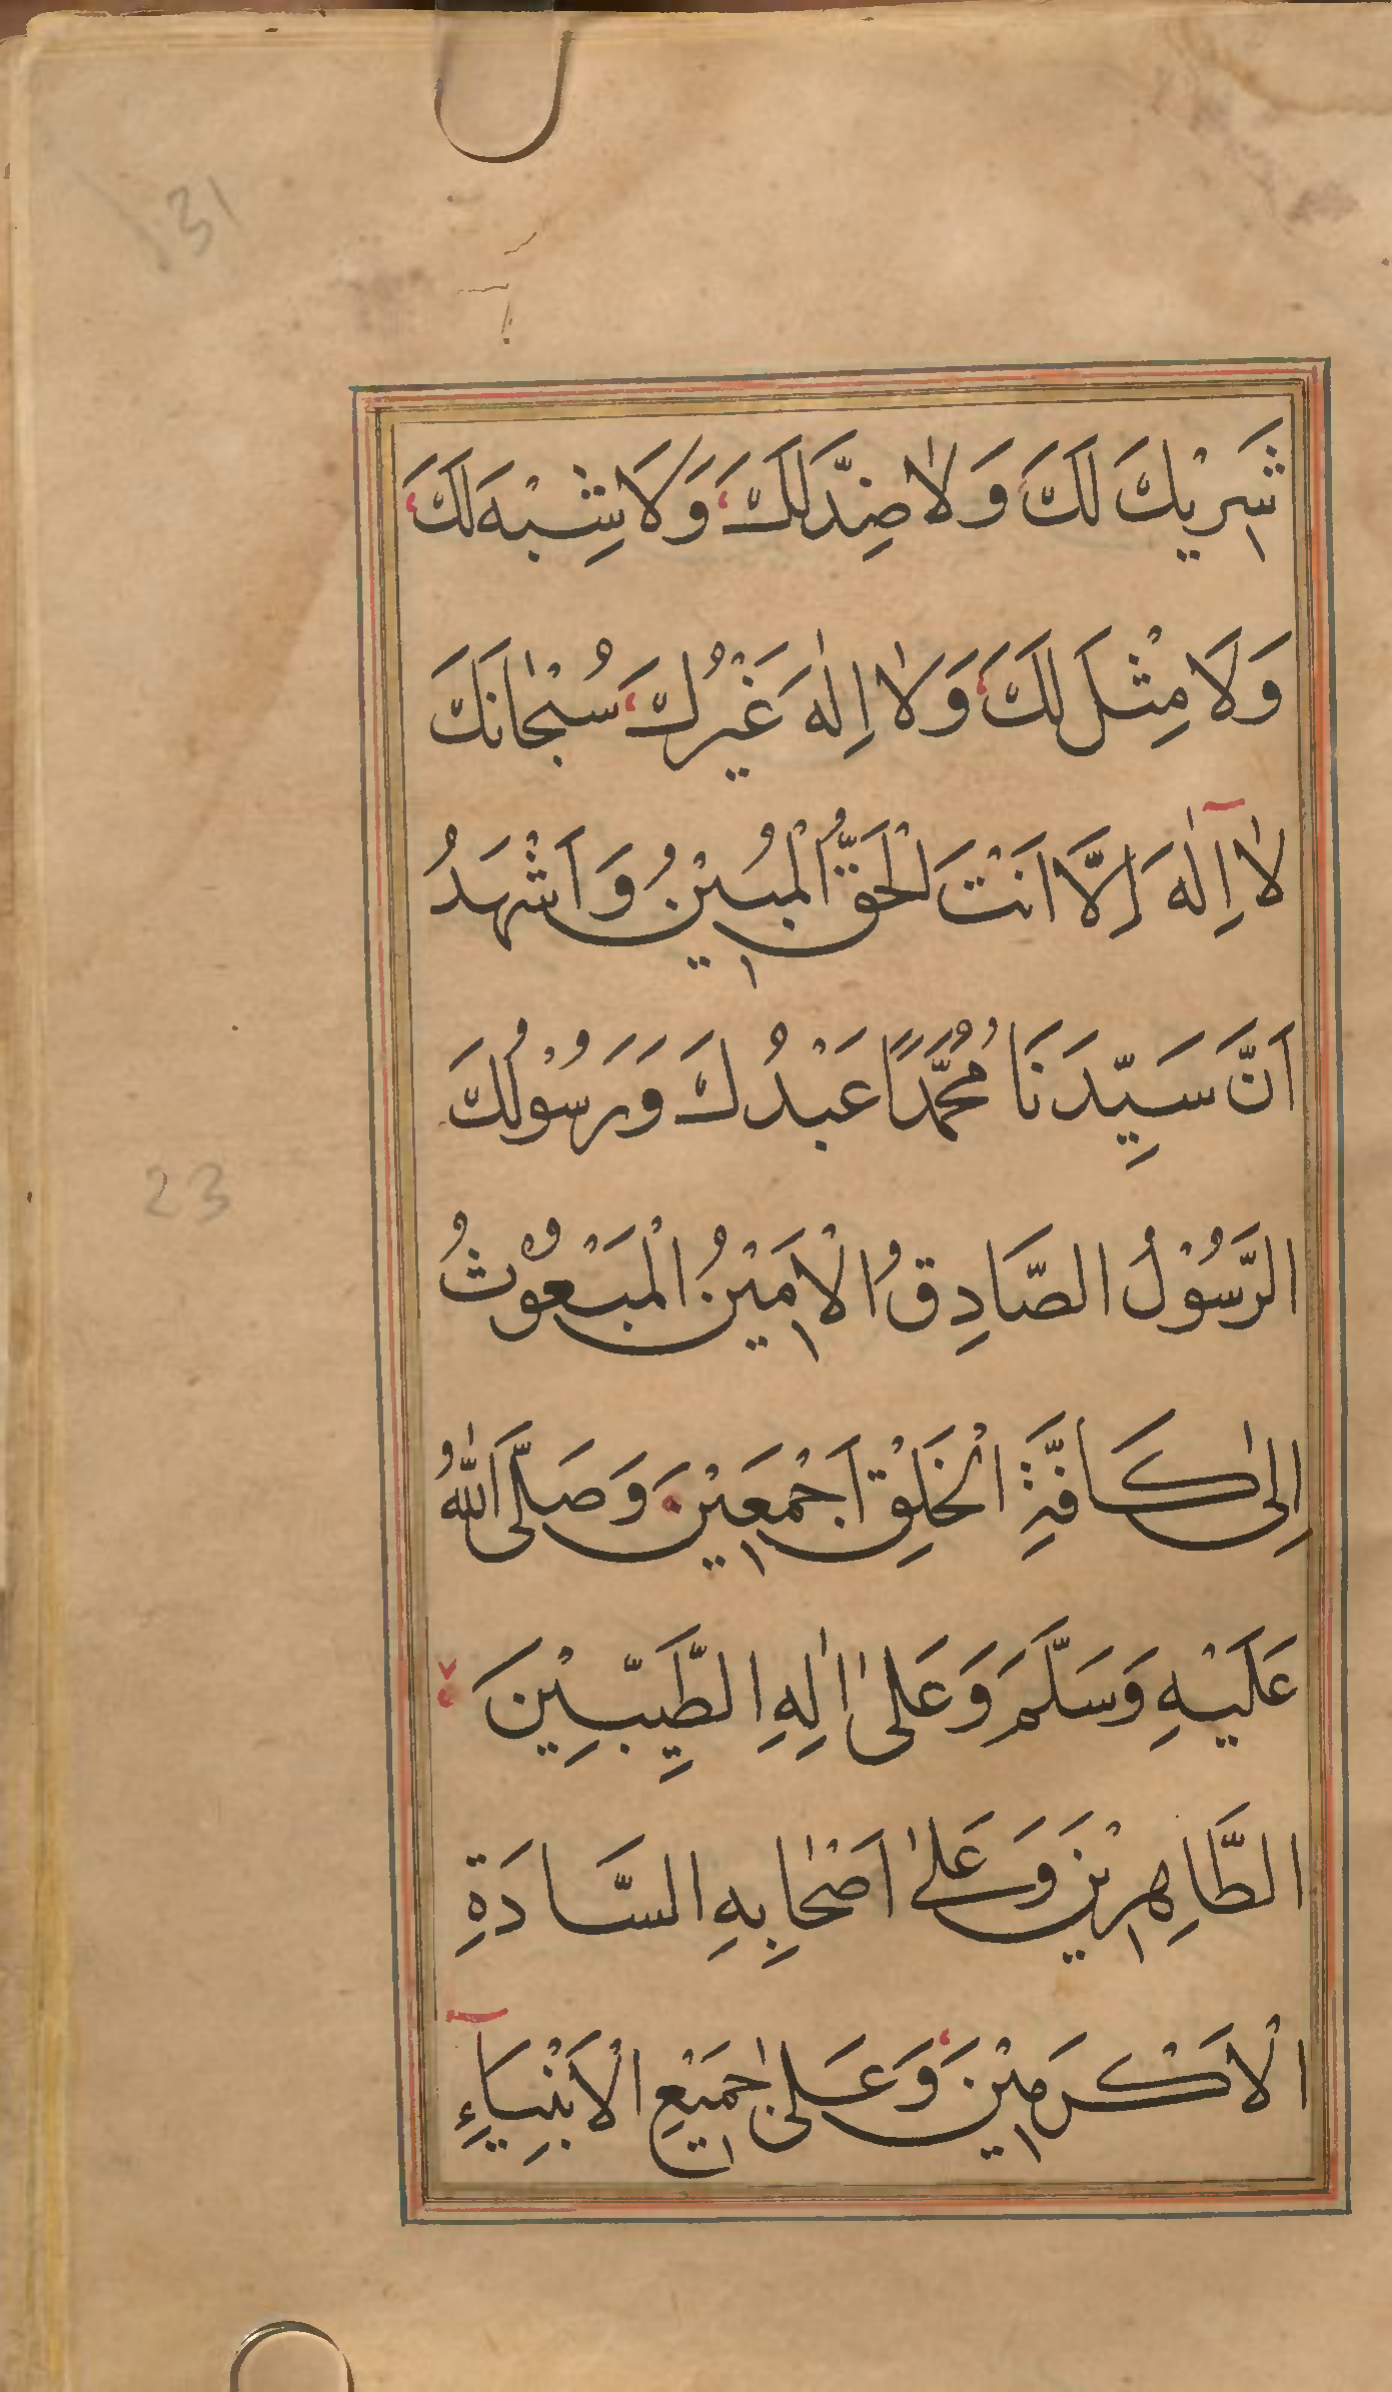 131
شَرِيْكَ لَكَ وَلَا ضِدَّ لَكَ وَلَا شِبْهَ لَكَ
وَلَا مِثْلَ لَكَ وَلَا اِلٰهَ غَيْرُكَ سُبْحَانَكَ
لَا اِلٰهَ اِلَّا اَنْتَ الْحَقُّ الْمُبِيْنُ وَاَشْهَدُ
اَنَّ سَيِّدَنَا مُحَمَّدًا عَبْدُكَ وَرَسُوْلُكَ
23
الرَّسُوْلُ الصَّادِقُ الْاَمِيْنُ الْمَبْعُوْثُ
اِلٰى كَافَّةِ الْخَلْقِ اَجْمَعِيْنَ وَصَلَّى اللّٰهُ
عَلَيْهِ وَسَلَّمَ وَعَلٰى اٰلِهِ الطَّيِّبِيْنَ
الطَّاهِرِيْنَ وَعَلٰى اَصْحَابِهِ السَّادَةِ
الْاَكْرَمِيْنَ وَعَلٰى جَمِيْعِ الْاَنْبِيَآءِ